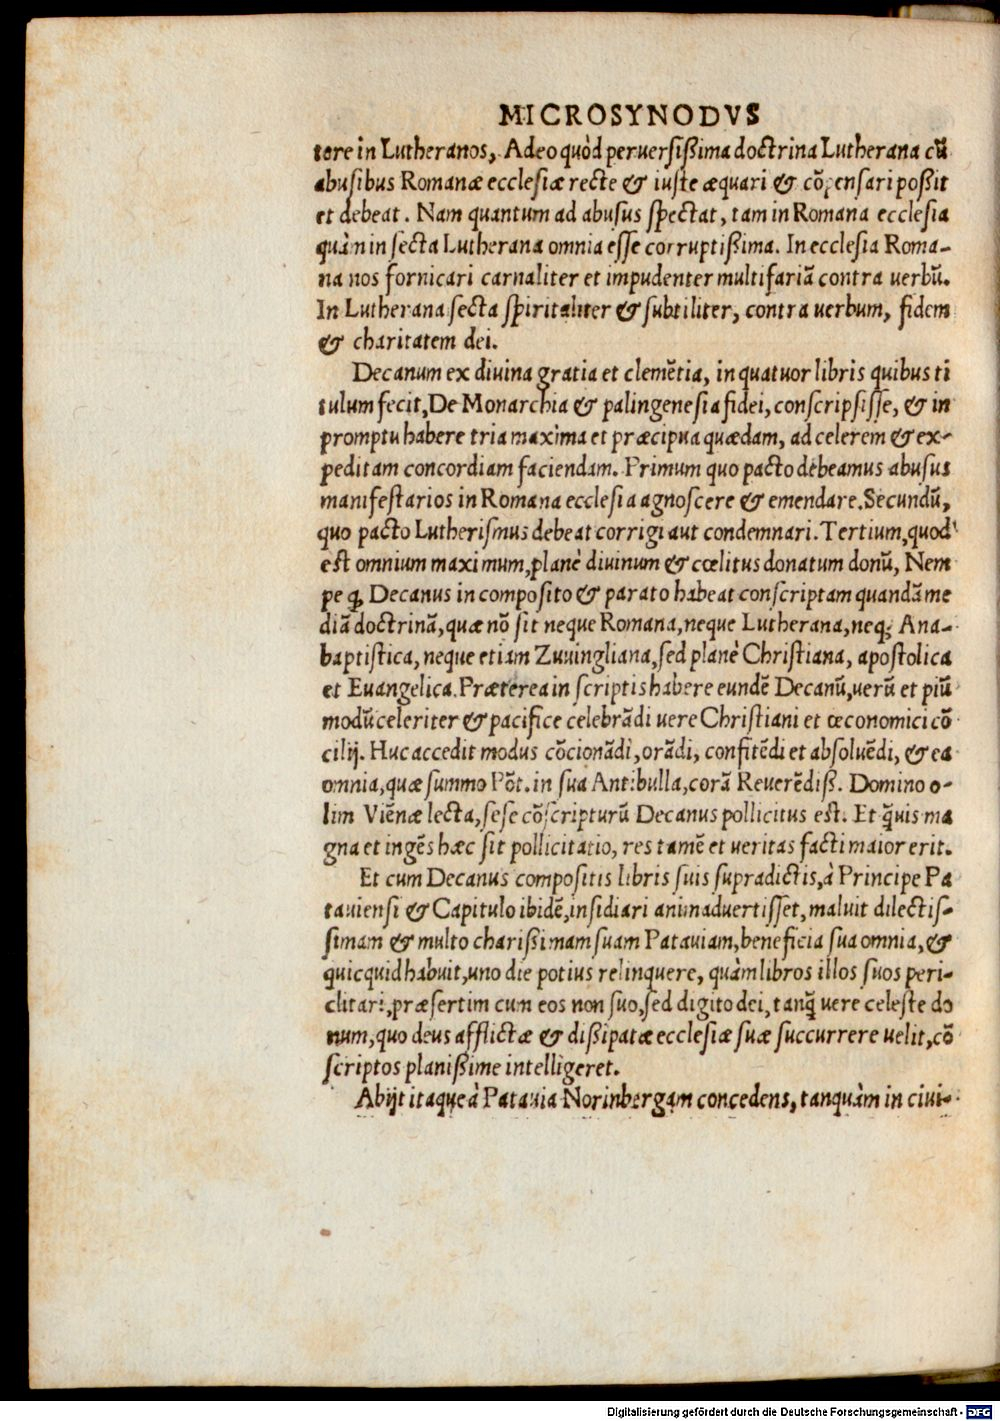 MICROSYNODVS
tere in Lutheranos, Adeo quòd peruersißima doctrina Lutherana cũ
abusibus Romanæ ecclesiæ recte & iuste æquari & cõpensari poßit
et debeat. Nam quantum ad abusus spectat, tam in Romana ecclesia
quàm in secta Lutherana omnia esse corruptißima. In ecclesia Roma-
na nos fornicari carnaliter et impudenter multifariã contra uerbũ.
In Lutherana secta spiritaliter & subtiliter, contra uerbum, fidem
& charitatem dei.
Decanum ex diuina gratia et clemẽtia, in quatuor libris quibus ti
tulum fecit, De Monarchia & palingenesia fidei, conscripsisse, & in
promptu habere tria maxima et præcipua quædam, ad celerem & ex-
peditam concordiam faciendam. Primum quo pacto debeamus abusus
manifestarios in Romana ecclesia agnoscere & emendare. Secundũ,
quo pacto Lutherismus debeat corrigi aut condemnari. Tertium, quod
est omnium maximum, planè diuinum & cœlitus donatum donũ, Nem
pe ꝙ Decanus in composito & parato habeat conscriptam quandã me
diã doctrinã, quæ nõ sit neque Romana, neque Lutherana, neq; Ana-
baptistica, neque etiam Zuuingliana, sed planè Christiana, apostolica
et Euangelica. Præterea in scriptis habere eundẽ Decanũ, uerũ et piũ
modũ celeriter & pacifice celebrãdi uere Christiani et œconomici cõ
cilij. Huc accedit modus cõcionãdi, orãdi, confitẽdi et absoluẽdi, & ea
omnia, quæ summo Põt. in sua Antibulla, corã Reuerẽdiß. Domino o-
lim Viẽnæ lecta, sese cõscripturũ Decanus pollicitus est. Et q̃uis ma
gna et ingẽs hæc sit pollicitatio, res tamẽ et ueritas facti maior erit.
Et cum Decanus compositis libris suis supradictis, à Principe Pa
tauiensi & Capitulo ibidẽ, insidiari animaduertisset, maluit dilectis-
simam & multo charißimam suam Patauiam, beneficia sua omnia, &
quicquid habuit, uno die potius relinquere, quàm libros illos suos peri-
clitari, præsertim cum eos non suo, sed digito dei, tanq̃ uere celeste do
num, quo deus afflictæ & dißipatæ ecclesiæ suæ succurrere uelit, cõ
scriptos planißime intelligeret.
Abijt itaque à Patauia Norinbergam concedens, tanquàm in ciui-
Digitalisierung gefördert durch die Deutsche Forschungsgemeinschaft - DFG